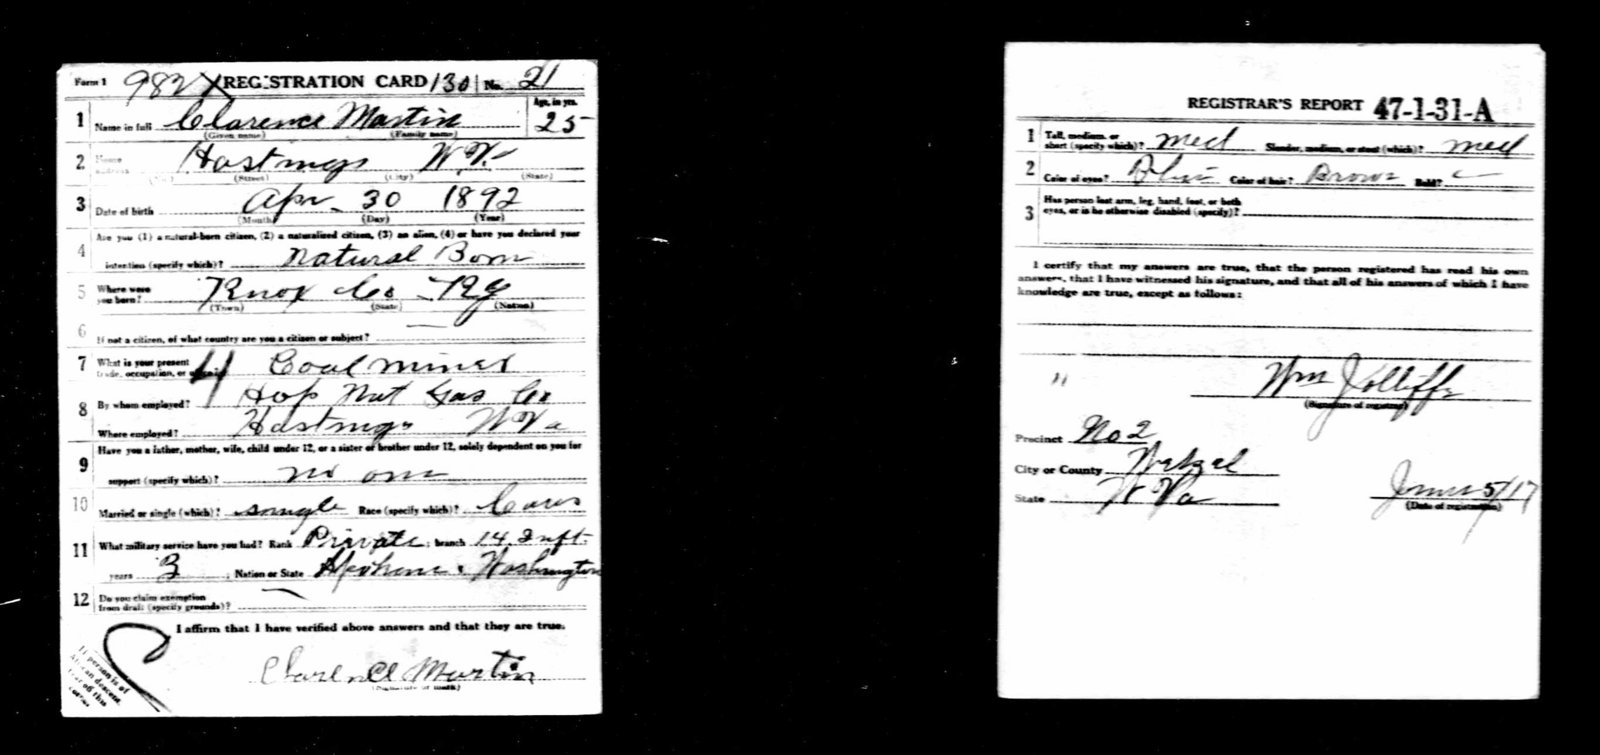 Form 1 982 X REGISTRATION CARD 130 No. 21
1 Name in full Clarence Martin Age, in yrs. 25
(Given name) (Family name)
2 Home address Hastings W Va
(No.) (Street) (City) (State)
3 Date of birth Apr 30 1892
(Month) (Day) (Year)
4 Are you (1) a natural-born citizen, (2) a naturalized citizen, (3) an alien, (4) or have you declared your
intention (specify which)? Natural Born
5 Where were you born? Knox Co Ky
(Town) (State) (Nation)
6 If not a citizen, of what country are you a citizen or subject? —
7 What is your present trade, occupation, or office? 4 Coal miner
8 By whom employed? Hop Nat Gas Co
Where employed? Hastings W Va
9 Have you a father, mother, wife, child under 12, or a sister or brother under 12, solely dependent on you for
support (specify which)? no one
10 Married or single (which)? single Race (specify which)? Cauc
11 What military service have you had? Rank Private; branch 14 Inft.
years 3; Nation or State Washington
12 Do you claim exemption from draft (specify grounds)? —
I affirm that I have verified above answers and that they are true.
Clarence Martin
(Signature or mark)
If person is of
African descent
tear off this
corner
REGISTRAR'S REPORT 47-1-31-A
1 Tall, medium, or short (specify which)? med Slender, medium, or stout (which)? med
2 Color of eyes? Blue Color of hair? Brown Bald? —
3 Has person lost arm, leg, hand, foot, or both
eyes, or is he otherwise disabled (specify)?
I certify that my answers are true, that the person registered has read his own
answers, that I have witnessed his signature, and that all of his answers of which I have
knowledge are true, except as follows:
" Wm Jolliffe
(Signature of registrar)
Precinct No 2
City or County Wetzel
State W Va June 5/17
(Date of registration)